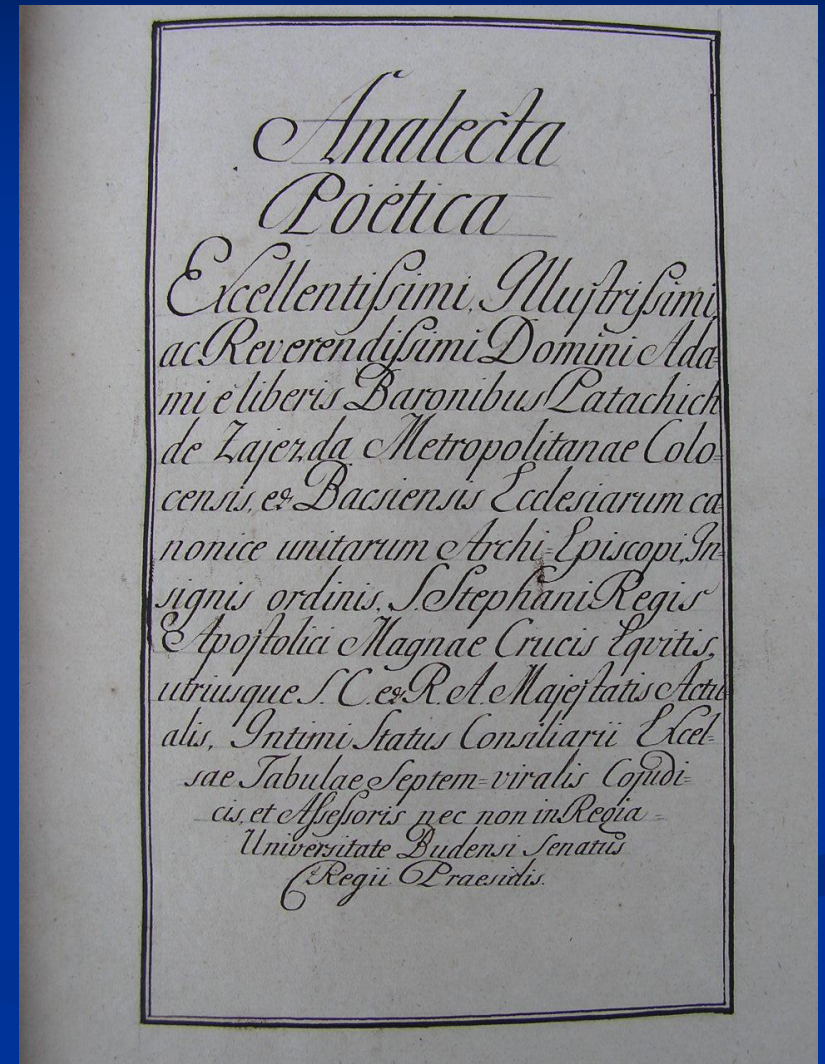 Analecta
Poëtica
Excellentissimi, Illustrissimi,
ac Reverendissimi Domini Ada-
mi e liberis Baronibus Patachich
de Zajezda Metropolitanae Colo-
censis, et Bacsiensis Ecclesiarum ca-
nonice unitarum Archi=Episcopi, In-
signis ordinis, S. Stephani Regis
Apostolici Magnae Crucis Eqvitis,
utriusque S. C. et R. A. Majestatis Actu
alis, Intimi Status Consiliarii Excel-
sae Tabulae Septem=viralis Cojudi-
cis, et Assessoris nec non in Regia
Universitate Budensi Senatus
Regii Praesidis.